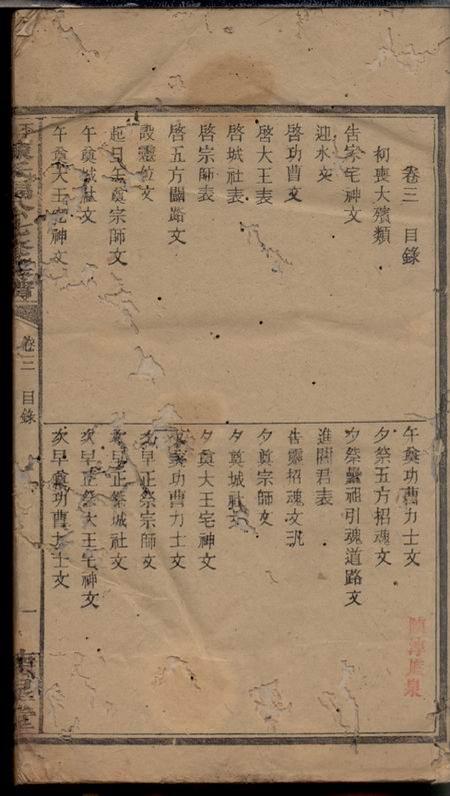 卷三 目錄
柯喪大殯類
告家宅神文
迎水文
啓功曹文
啓大王表
啓城社表
啓宗師表
啓五方開路文
設靈位文
起日午奠宗師文
午奠城社文
午奠大王宅神文
午奠功曹力士文
夕祭五方招魂文
夕祭靈祖引魂道路文
進閻君表
告靈招魂文
夕奠宗師文
夕奠城社文
夕奠大王宅神文
夕奠功曹力士文
次早正祭宗師文
次早正祭城社文
次早正祭大王宅神文
次早奠功曹力士文
卷三 目錄
一